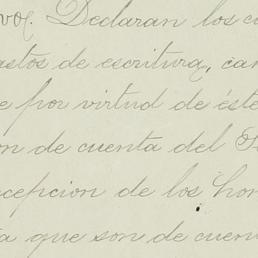 vo. Declaran los c
astos de escritura, can
e por virtud de éste
n de cuenta del
cepcion de los hon
a que son de cuen